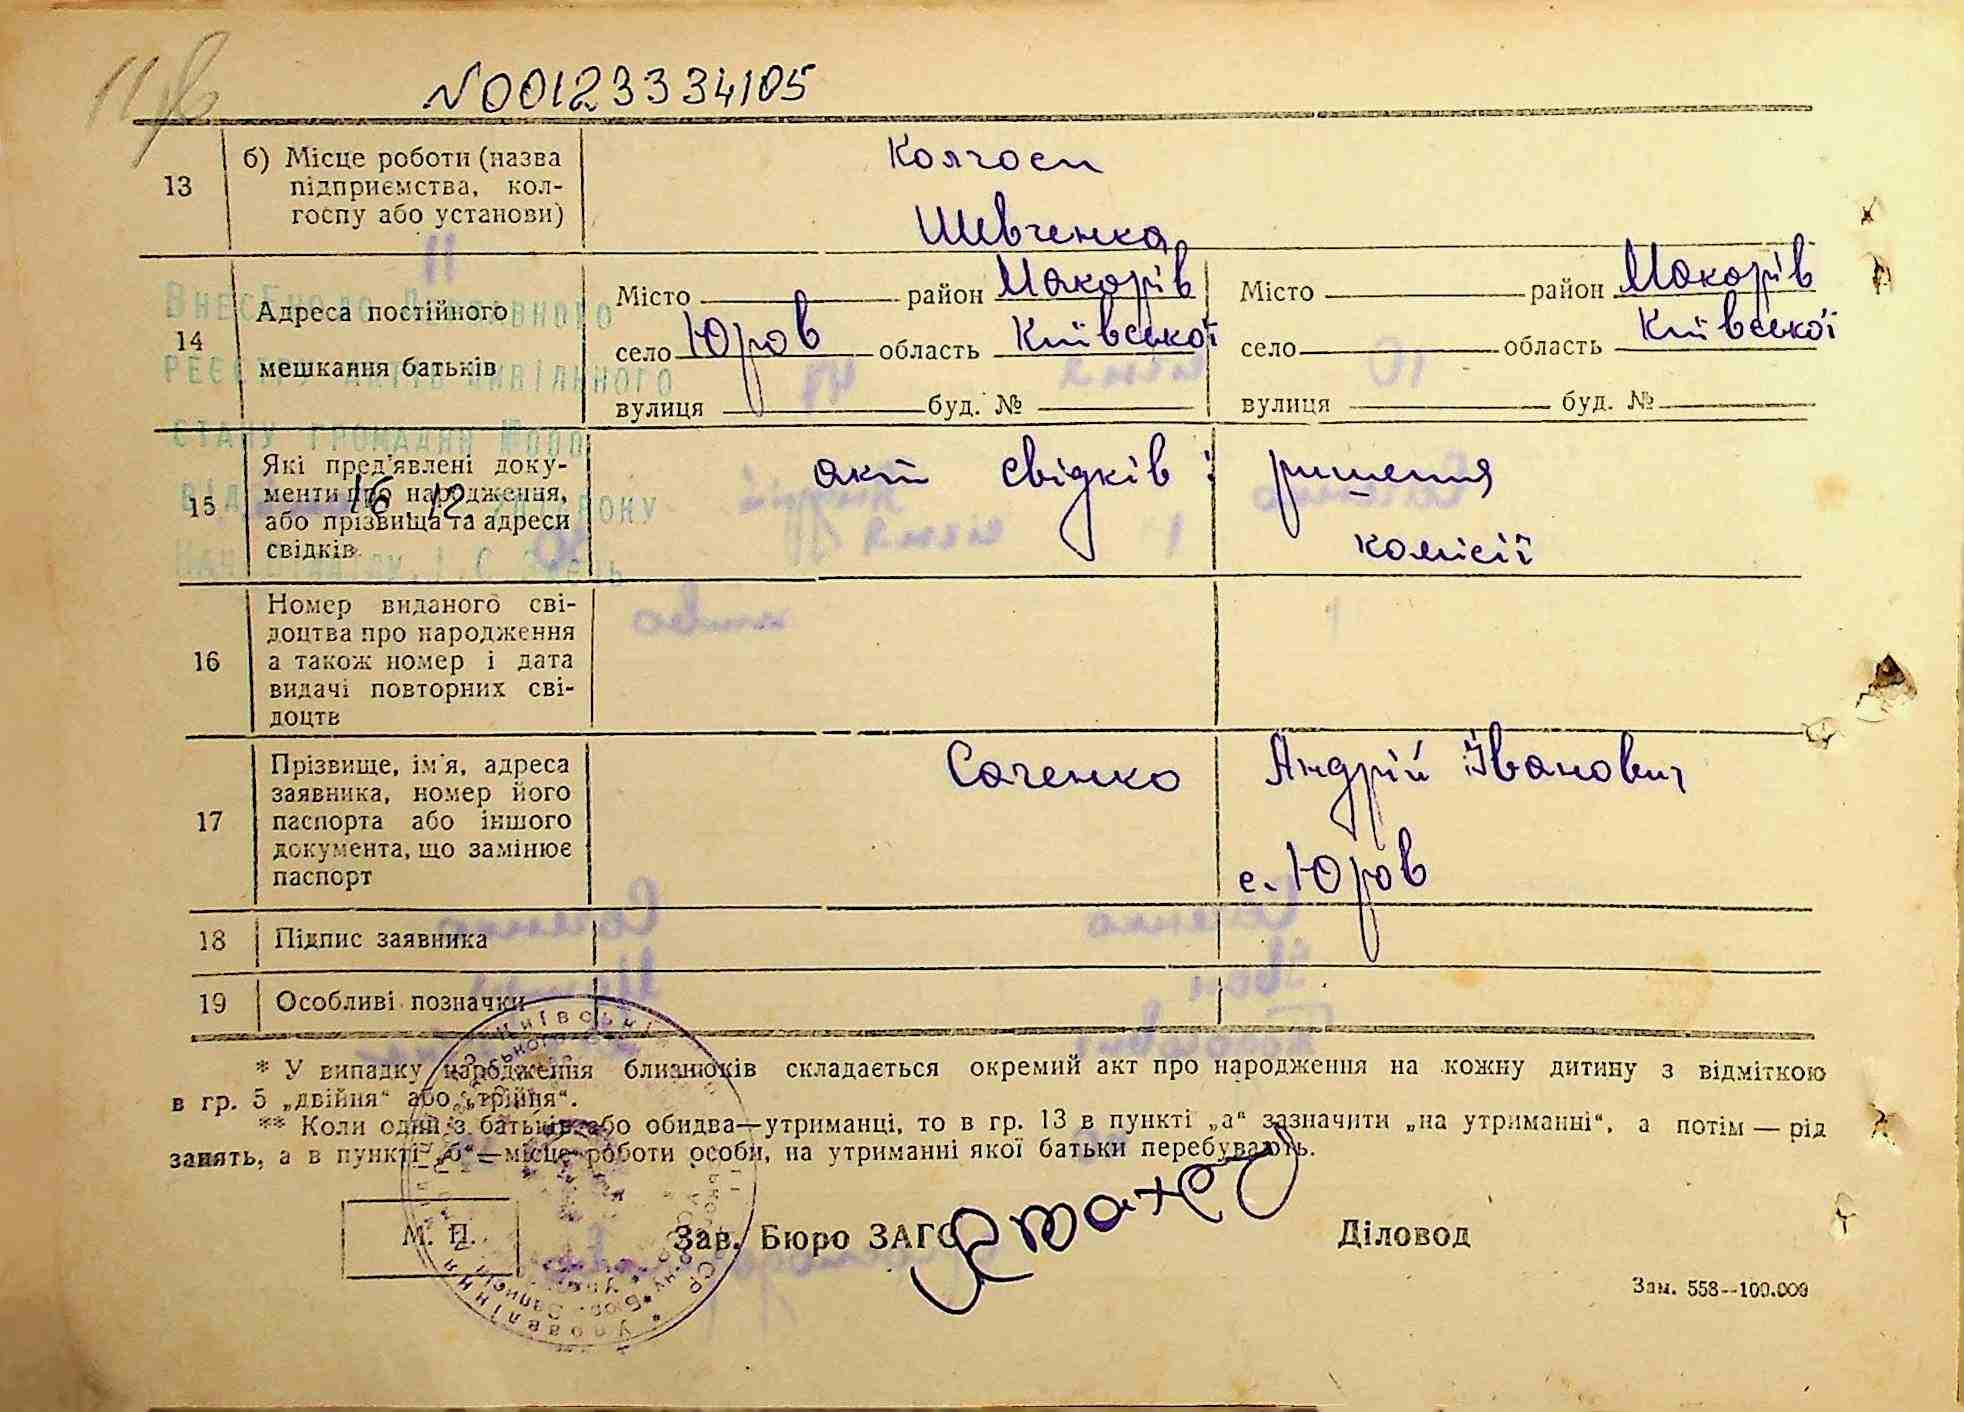 N00123334105
13
б) Місце роботи (назва
підприємства, кол-
госпу або установи)
Колгосп
Шевченка
14
Адреса постійного
мешкання батьків
Місто район Макорів
село Юров область Київської
вулиця буд. №
Місто район Макорів
село область Київської
вулиця буд. №
Внесено до Державного
реєстру актів цивільного
стану громадян
16 12 року
15
Які пред'явлені доку-
менти про народження,
або прізвища та адреси
свідків
акт свідків і ришення
комісії
16
Номер виданого сві-
доцтва про народження
а також номер і дата
видачі повторних сві-
доцтв
17
Прізвище, ім'я, адреса
заявника, номер його
паспорта або іншого
документа, що замінює
паспорт
Саченко Андрій Іванович
с. Юров
18
Підпис заявника
19
Особливі позначки
* У випадку народження близнюків складається окремий акт про народження на кожну дитину з відміткою
в гр. 5 „двійня“ або „трійня“.
** Коли один з батьків або обидва—утриманці, то в гр. 13 в пункті „а“ зазначити „на утриманні“, а потім — рід
занять, а в пункті „б“—місце роботи особи, на утриманні якої батьки перебувають.
М. П.
Зав. Бюро ЗАГС
Діловод
Зам. 558--100.000